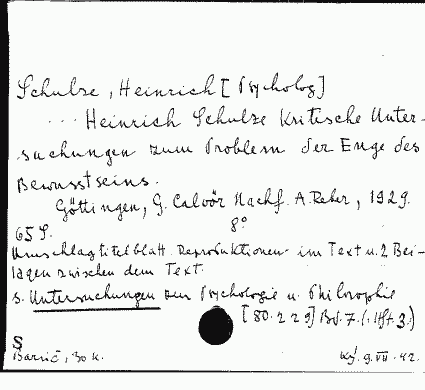 Schulze, Heinrich [Psycholog]
... Heinrich Schulze Kritische Unter-
suchungen zum Problem der Enge des
Bewusstseins.
Göttingen, G. Calvör Nachf. A. Reher, 1929.
65 S. 8°
Umschlagtitelblatt. Reproduktionen im Text u. 2 Bei-
lagen zwischen dem Text.
s. Untersuchungen zur Psychologie u. Philosophie
[80.229] Bd. 7. (. Hft 3.)
S
Barić, 30 k. 9.VII.42.